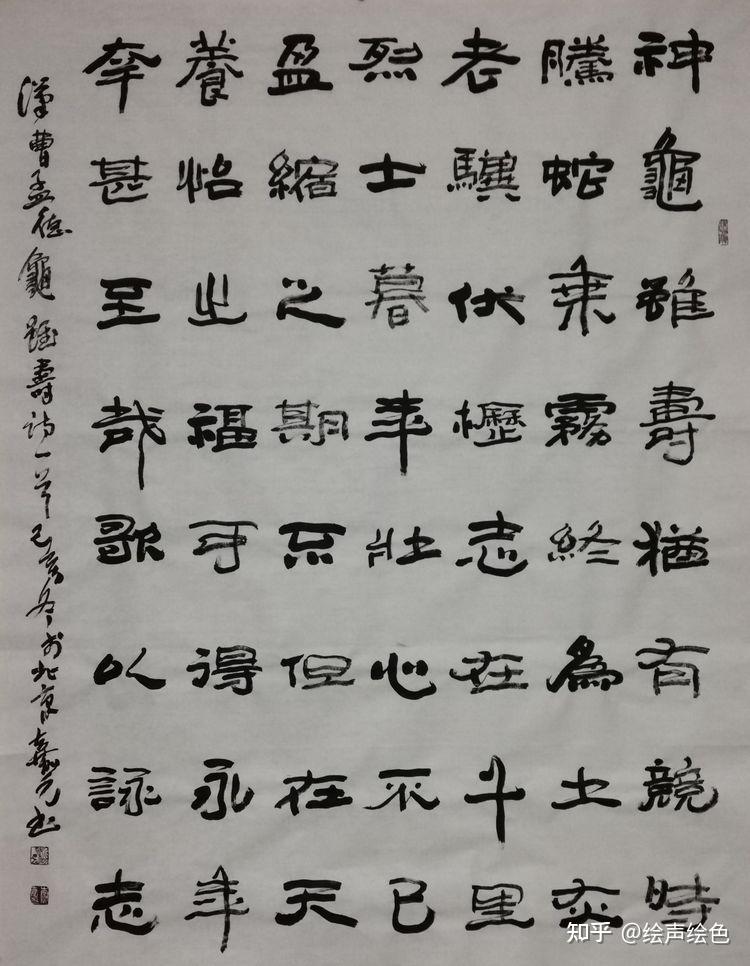 神龜雖壽猶有競時
騰蛇乘霧終為土灰
老驥伏櫪志在千里
烈士暮年壯心不已
盈縮之期不但在天
養怡之福可得永年
幸甚至哉歌以詠志
漢曹孟德龜雖壽诗一首己亥冬於北京嘉元书
知乎 @绘声绘色